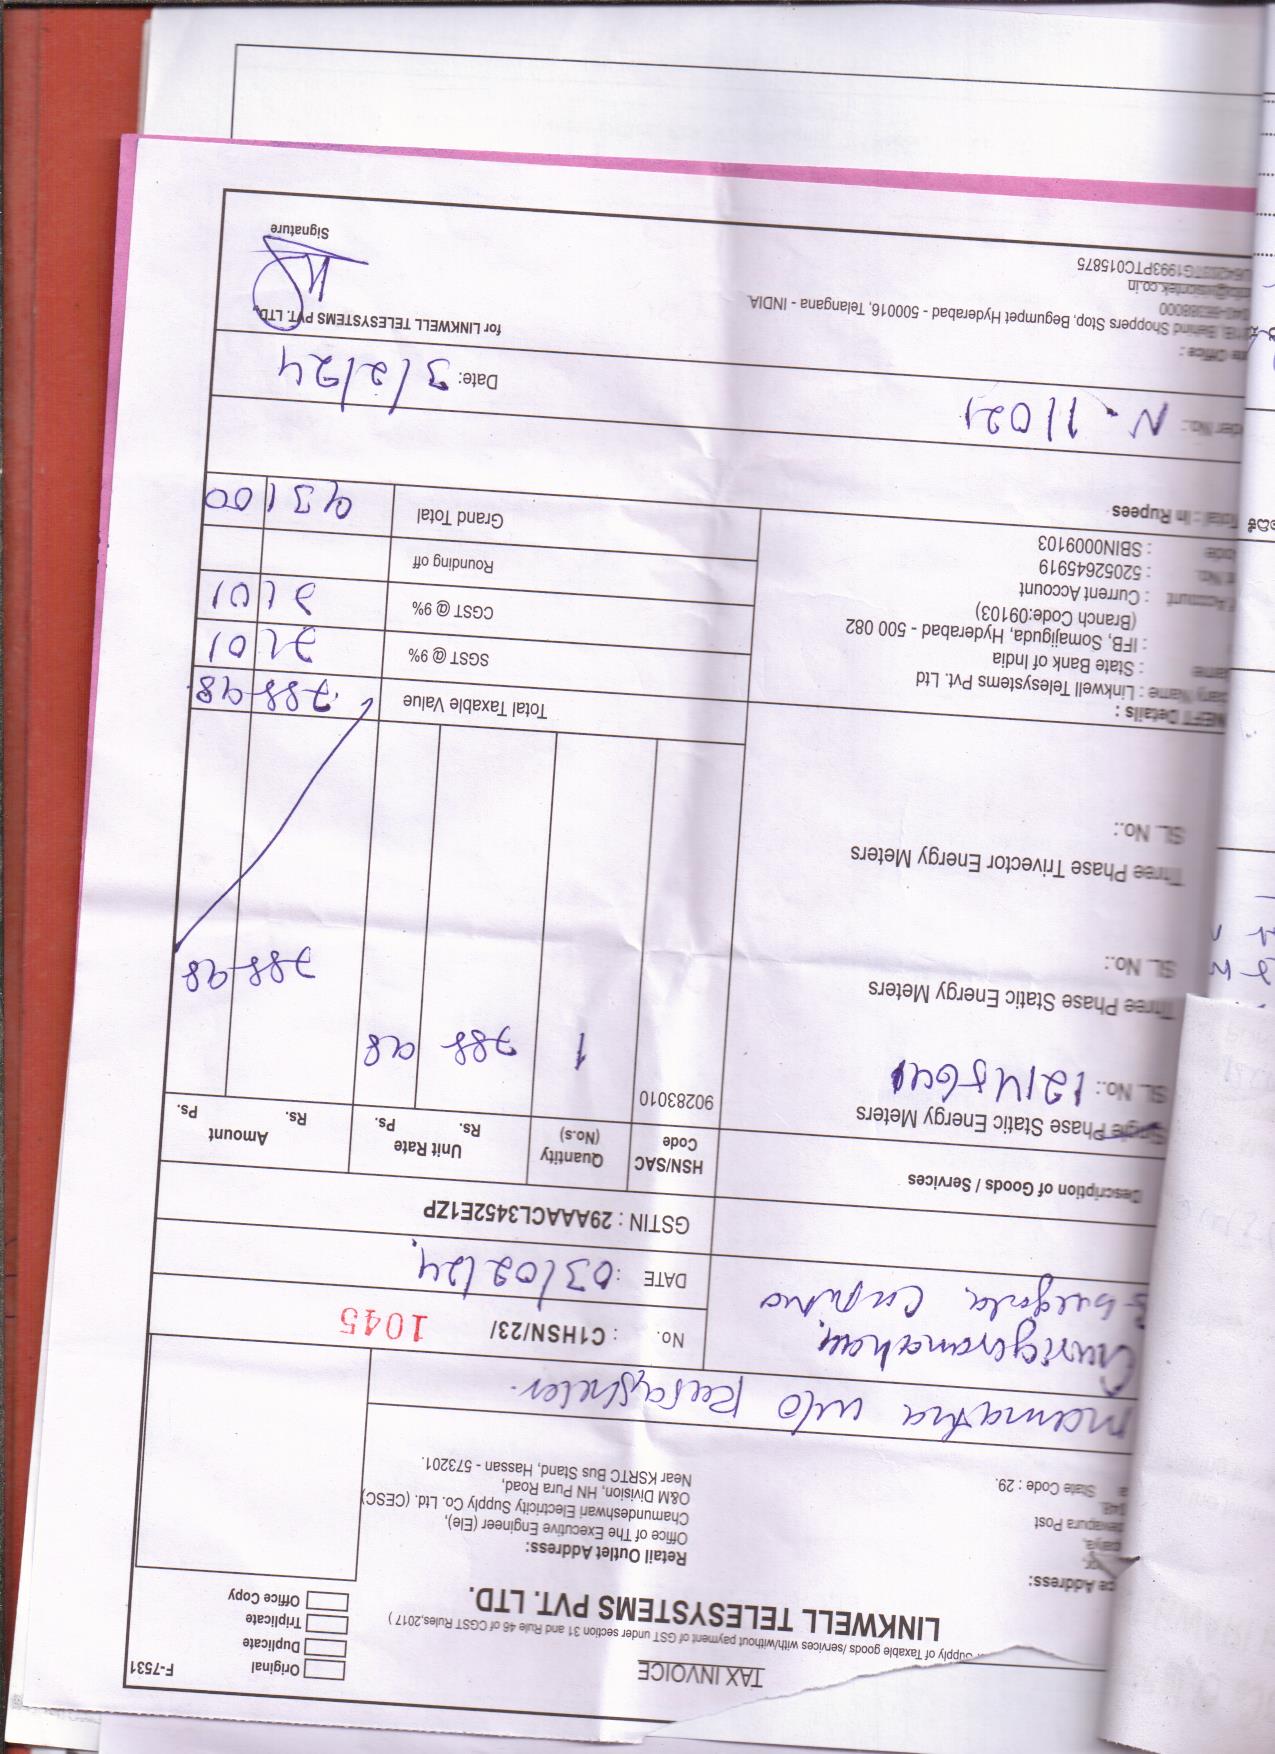 F-7531
TAX INVOICE
Supply of Taxable goods /services with/without payment of GST under section 31 and Rule 46 of CGST Rules,2017 )
LINKWELL TELESYSTEMS PVT. LTD.
Original
Duplicate
Triplicate
Office Copy
Address:
Post
State Code : 29.
Retail Outlet Address:
Office of The Executive Engineer (Ele),
Chamundeshwari Electricity Supply Co. Ltd. (CESC)
O&M Division, HN Pura Road,
Near KSRTC Bus Stand, Hassan - 573201.
No. : C1HSN/23/ 1045
DATE : 03/02/24
GSTIN : 29AAACL3452E1ZP
Description of Goods / Services
HSN/SAC Code
Quantity (No.s)
Unit Rate
Rs. Ps.
Amount
Rs. Ps.
Single Phase Static Energy Meters
90283010
SL. No.: 1 788 98
788 98
Three Phase Static Energy Meters
SL. No.:
Three Phase Trivector Energy Meters
SL. No.:
NEFT Details :
Name : Linkwell Telesystems Pvt. Ltd
: State Bank of India
: IFB, Somajiguda, Hyderabad - 500 082
(Branch Code:09103)
Account : Current Account
: 52052645919
: SBIN0009103
Total Taxable Value 788 98
SGST @ 9% 71 01
CGST @ 9% 71 01
Rounding off
Grand Total 931 00
Total : In Rupees
No.: N-11021
Date: 3/2/24
Office :
Behind Shoppers Stop, Begumpet Hyderabad - 500016, Telangana - INDIA.
for LINKWELL TELESYSTEMS PVT. LTD.
Signature